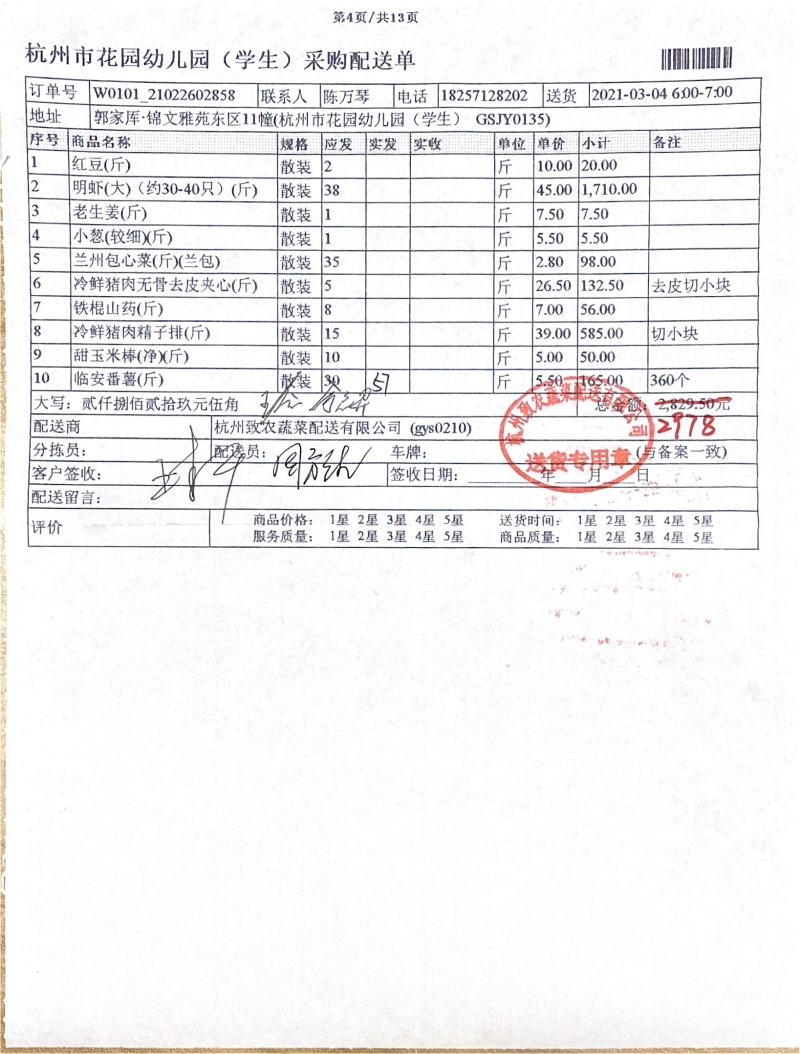 第4页/共13页
杭州市花园幼儿园（学生）采购配送单
订单号 W0101_21022602858 联系人 陈万琴 电话 18257128202 送货 2021-03-04 6:00-7:00
地址 郭家厍·锦文雅苑东区11幢(杭州市花园幼儿园（学生） GSJY0135)
序号 商品名称 规格 应发 实发 实收 单位 单价 小计 备注
1 红豆(斤) 散装 2 斤 10.00 20.00
2 明虾(大)（约30-40只）(斤) 散装 38 斤 45.00 1,710.00
3 老生姜(斤) 散装 1 斤 7.50 7.50
4 小葱(较细)(斤) 散装 1 斤 5.50 5.50
5 兰州包心菜(斤)(兰包) 散装 35 斤 2.80 98.00
6 冷鲜猪肉无骨去皮夹心(斤) 散装 5 斤 26.50 132.50 去皮切小块
7 铁棍山药(斤) 散装 8 斤 7.00 56.00
8 冷鲜猪肉精子排(斤) 散装 15 斤 39.00 585.00 切小块
9 甜玉米棒(净)(斤) 散装 10 斤 5.00 50.00
10 临安番薯(斤) 散装 30 57 斤 5.50 165.00 360个
大写：贰仟捌佰贰拾玖元伍角 总金额：2,829.50元
2978
配送商 杭州致农蔬菜配送有限公司 (gys0210)
杭州致农蔬菜配送有限公司
送货专用章
分拣员： 配送员： 车牌： (与备案一致)
客户签收： 签收日期： 年 月 日
配送留言：
评价 商品价格： 1星 2星 3星 4星 5星 送货时间： 1星 2星 3星 4星 5星
服务质量： 1星 2星 3星 4星 5星 商品质量： 1星 2星 3星 4星 5星